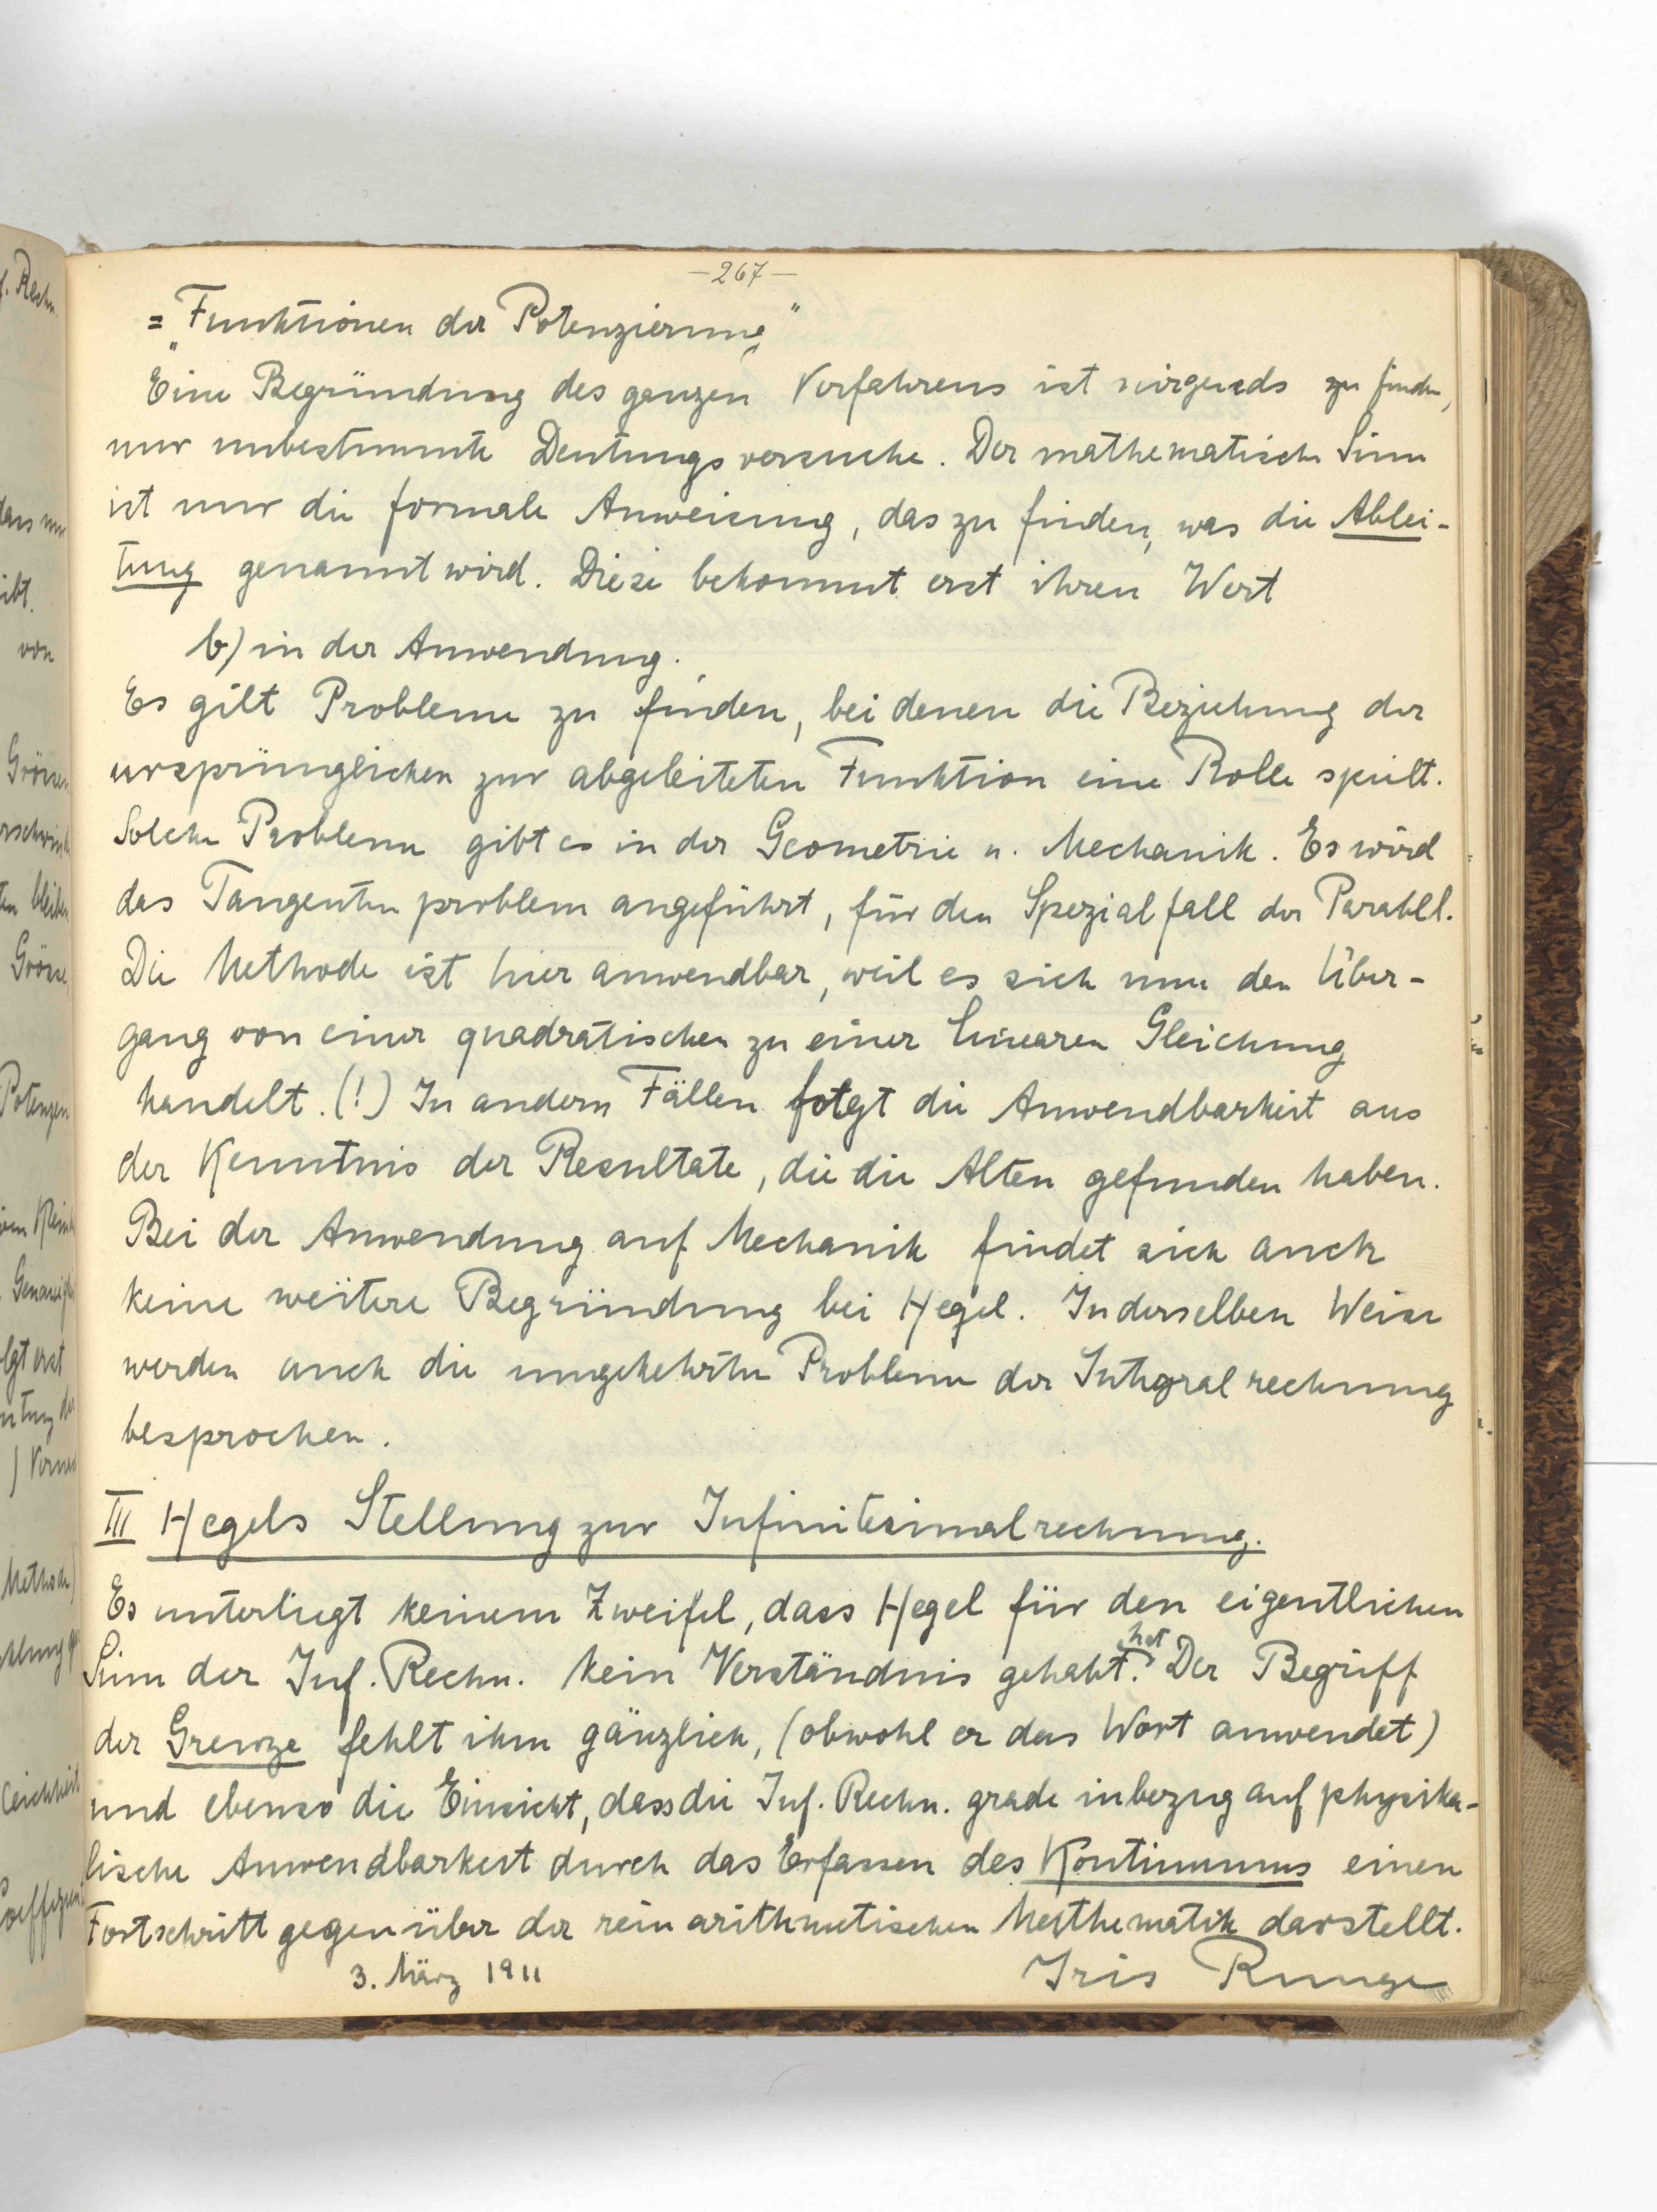 -267-
= „Funktionen der Potenzierung"
Eine Begründung des ganzen Verfahrens ist nirgends zu finden,
nur unbestimmte Deutungsversuche. Der mathematische Sinn
ist nur die formale Anweisung, das zu finden, was die Ablei-
tung genannt wird. Diese bekommt erst ihren Wert
b) in der Anwendung.
Es gilt Probleme zu finden, bei denen die Beziehung der
ursprünglichen zur abgeleiteten Funktion eine Rolle spielt.
Solche Probleme gibt es in der Geometrie u. Mechanik. Es wird
das Tangentenproblem angeführt, für den Spezialfall der Parabel.
Die Methode ist hier anwendbar, weil es sich um den Über-
gang von einer quadratischen zu einer linearen Gleichung
handelt. (!) In andern Fällen folgt die Anwendbarkeit aus
der Kenntnis der Resultate, die die Alten gefunden haben.
Bei der Anwendung auf Mechanik findet sich auch
keine weitere Begründung bei Hegel. In derselben Weise
werden auch die umgekehrten Probleme der Integralrechnung
besprochen.
III Hegels Stellung zur Infinitesimalrechnung.
Es unterliegt keinem Zweifel, dass Hegel für den eigentlichen
Sinn der Inf. Rechn. kein Verständnis gehabt hat. Der Begriff
der Grenze fehlt ihm gänzlich, (obwohl er das Wort anwendet)
und ebenso die Einsicht, dass die Inf. Rechn. grade inbezug auf physika-
lische Anwendbarkeit durch das Erfassen des Kontinuums einen
Fortschritt gegenüber der rein arithmetischen Mathematik darstellt.
3. März 1911 Iris Runge